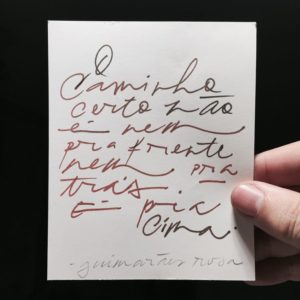 O
Caminho
certo não
é nem
pra frente
nem pra
trás
É pra
cima.
- guimarães rosa